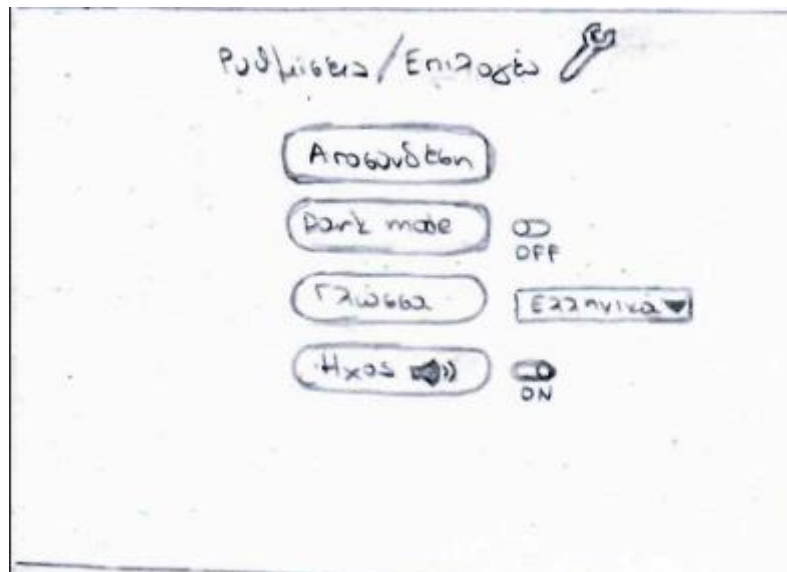 Ρυθμίσεις/Επιλογές
Αποσύνδεση
Dark mode
OFF
Γλώσσα
Ελληνικά
Ήχος
ON